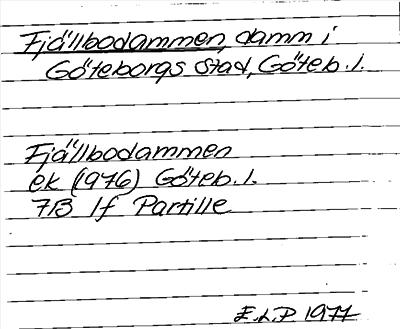 Fjällbodammen, damm i
Göteborgs stad, Göteb. l.
Fjällbodammen
ek (1976) Göteb. l.
7B lf Partille
E.L.P 1977